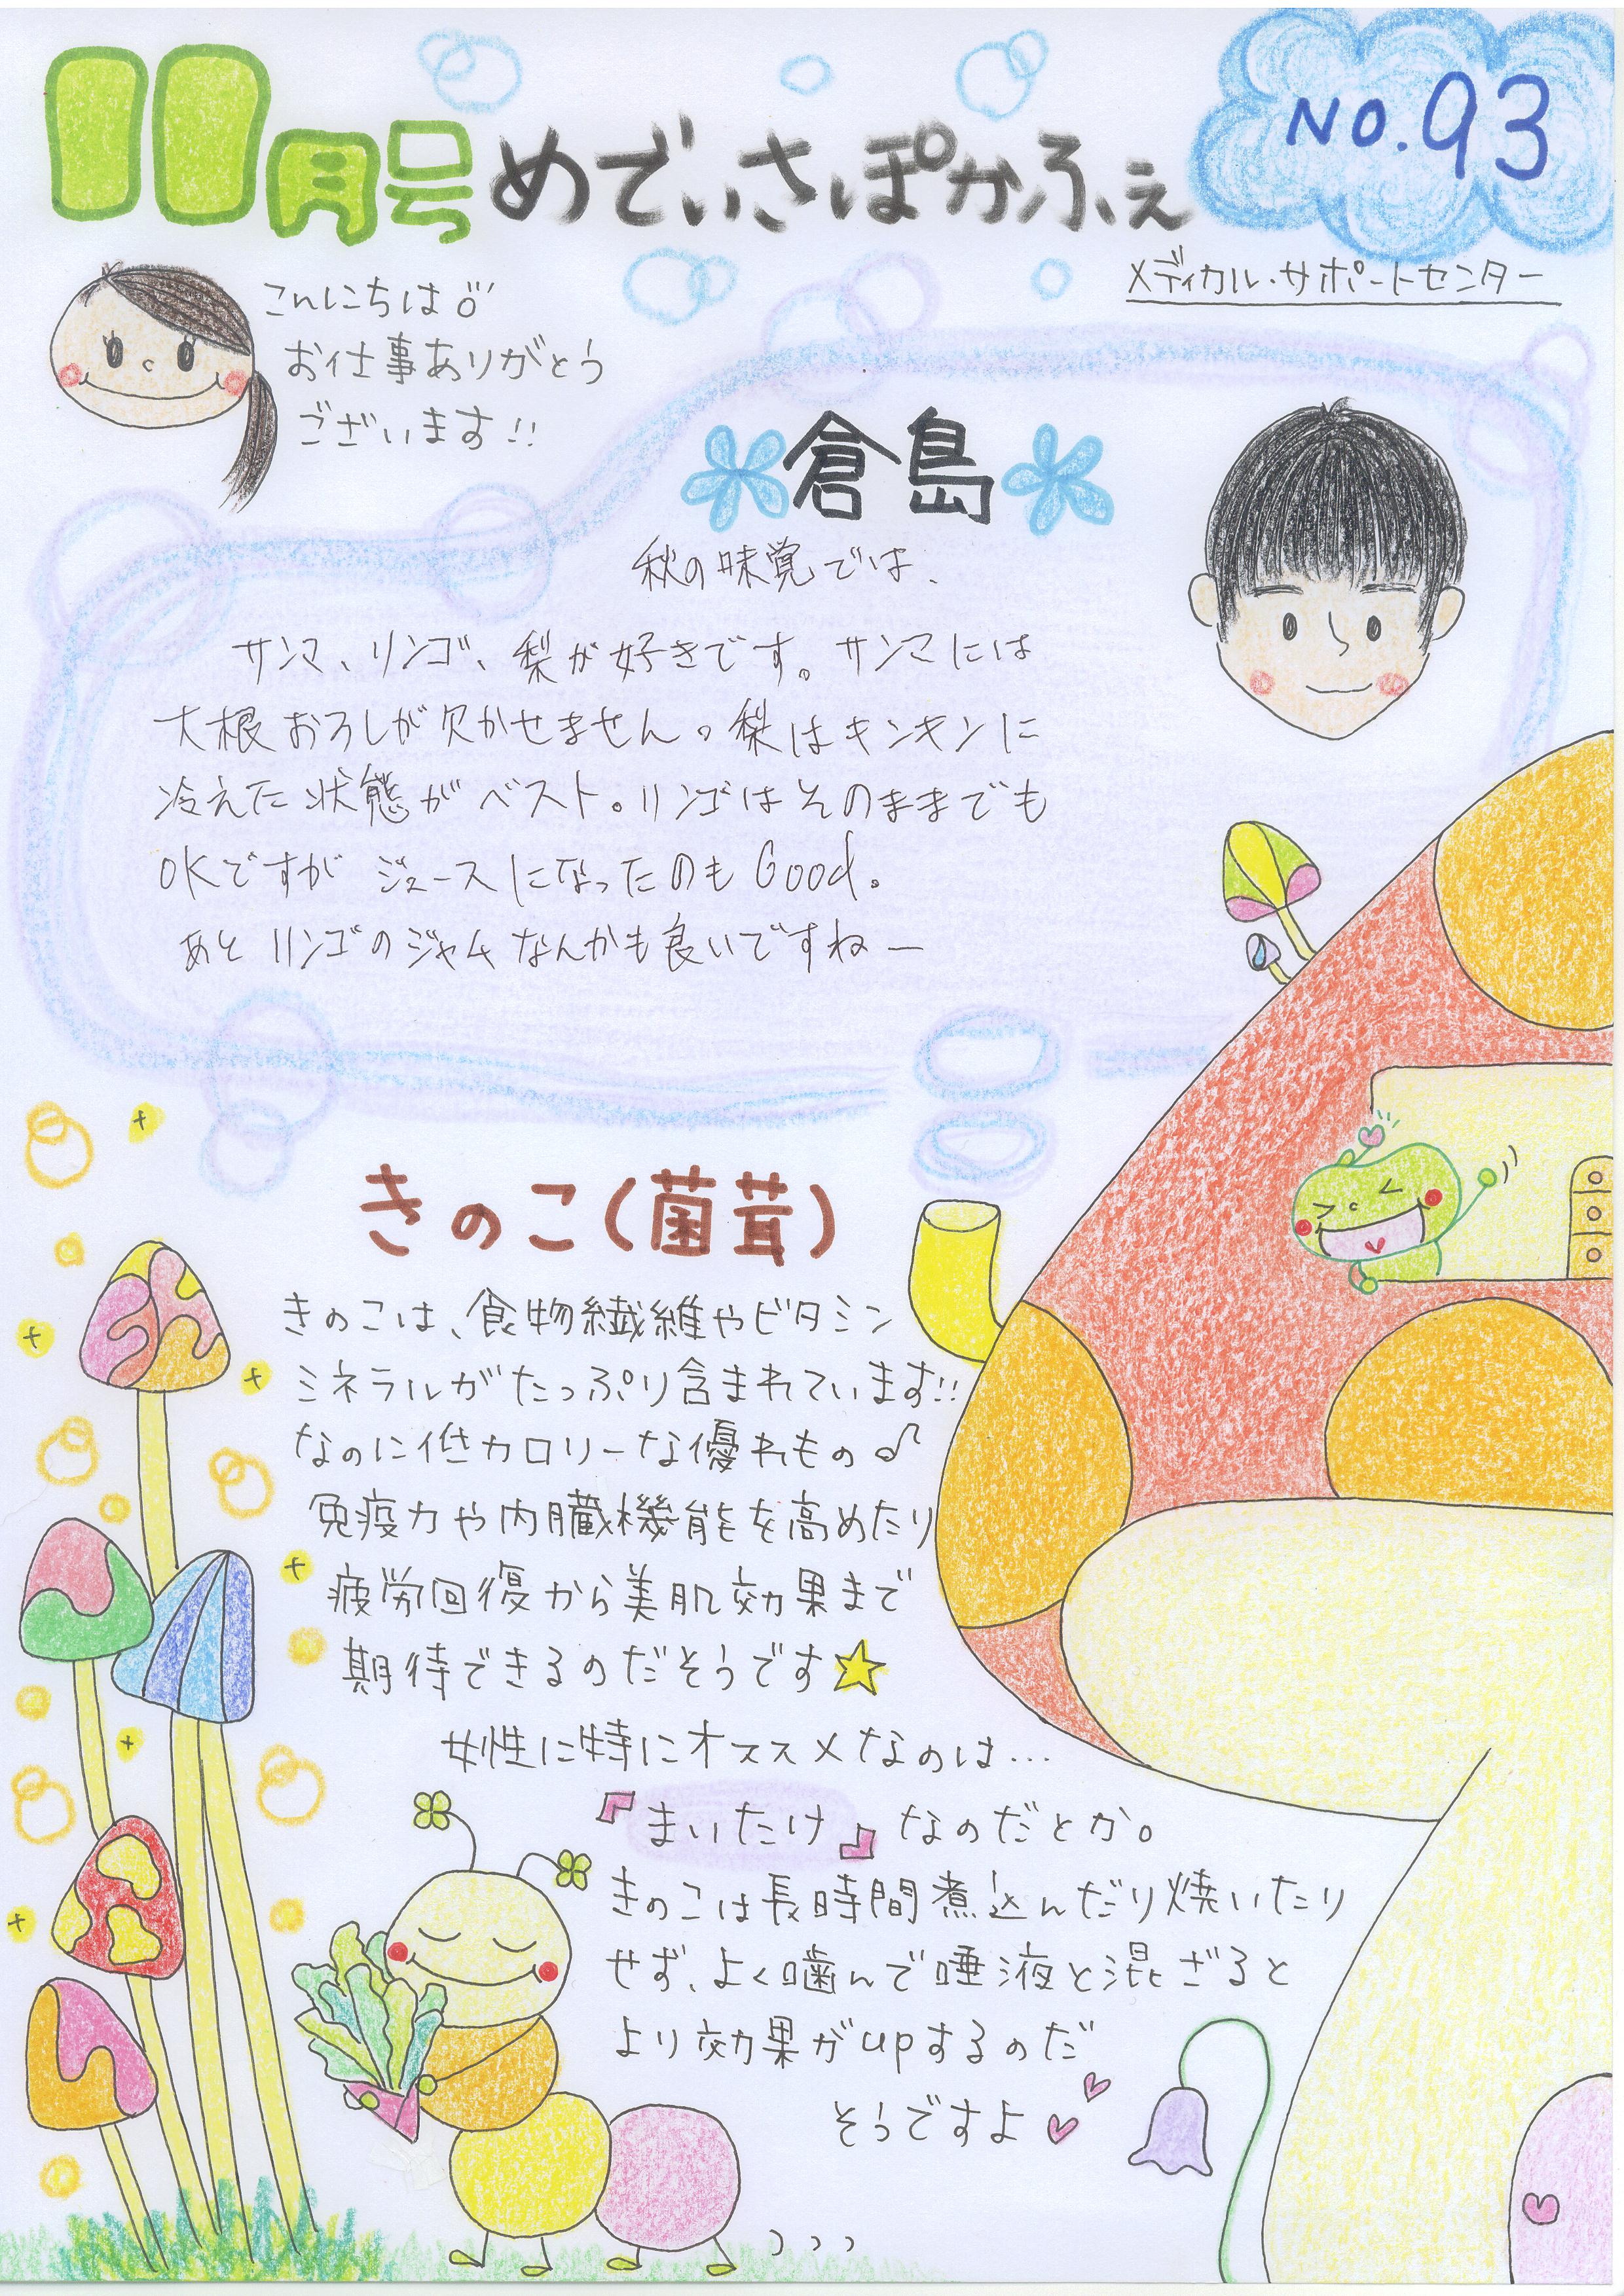 11月号 めでぃさぽかふぇ
NO.93
メディカル・サポートセンター
こんにちは
お仕事ありがとう
ございます!!
倉島
秋の味覚では、
サンマ、リンゴ、梨が好きです。サンマには
大根おろしが欠かせません。梨はキンキンに
冷えた状態がベスト。リンゴはそのままでも
OKですが ジュースになったのもGood。
あと リンゴのジャムなんかも良いですねー
きのこ(菌茸)
きのこは、食物繊維やビタミン
ミネラルがたっぷり含まれています!!
なのに低カロリーな優れもの♪
免疫力や内臓機能を高めたり
疲労回復から美肌効果まで
期待できるのだそうです☆
女性に特にオススメなのは…
『まいたけ』なのだとか。
きのこは長時間煮込んだり焼いたり
せず、よく噛んで唾液と混ざると
より効果がupするのだ
そうですよ♡♡